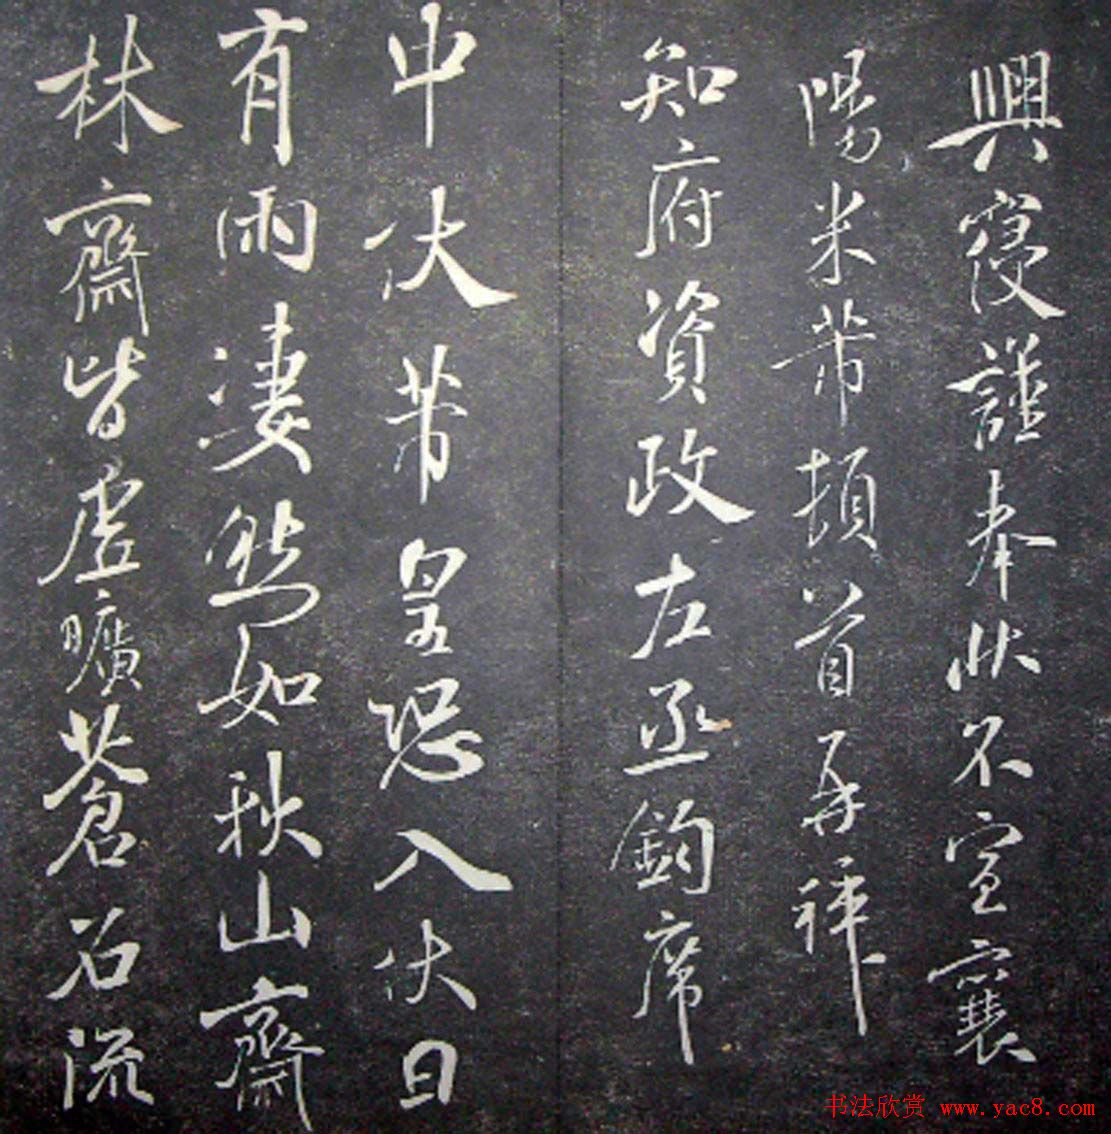 興寢謹奉狀不宣襄
陽米芾頓首再拜
知府資政左丞鈞席
中伏芾皇恐入伏日
有雨凄然如秋山齋
林齋皆虛曠蒼石流
书法欣赏 www.yac8.com